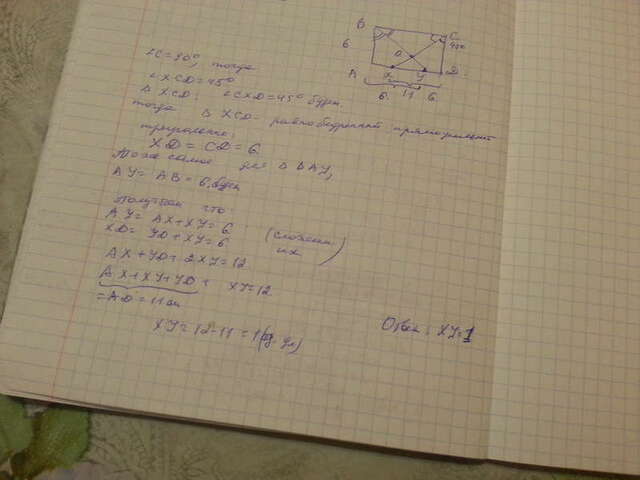 B
C
6
45°
O
A
X
Y
D
6
11
6
∠C = 90°, тогда
∠XCD = 45°
Δ XCD: ∠CXD = 45° будет
тогда Δ XCD равнобедренный прямоугольный
треугольник.
XD = CD = 6
Тоже самое для Δ BAY,
AY = AB = 6 будет
Получаем что:
AY = AX + XY = 6
XD = YD + XY = 6
(сложим их)
AX + YD + 2XY = 12
AX + XY + YD + XY = 12
= AD = 11 см
XY = 12 - 11 = 1 (ед. дл)
Ответ: XY = 1